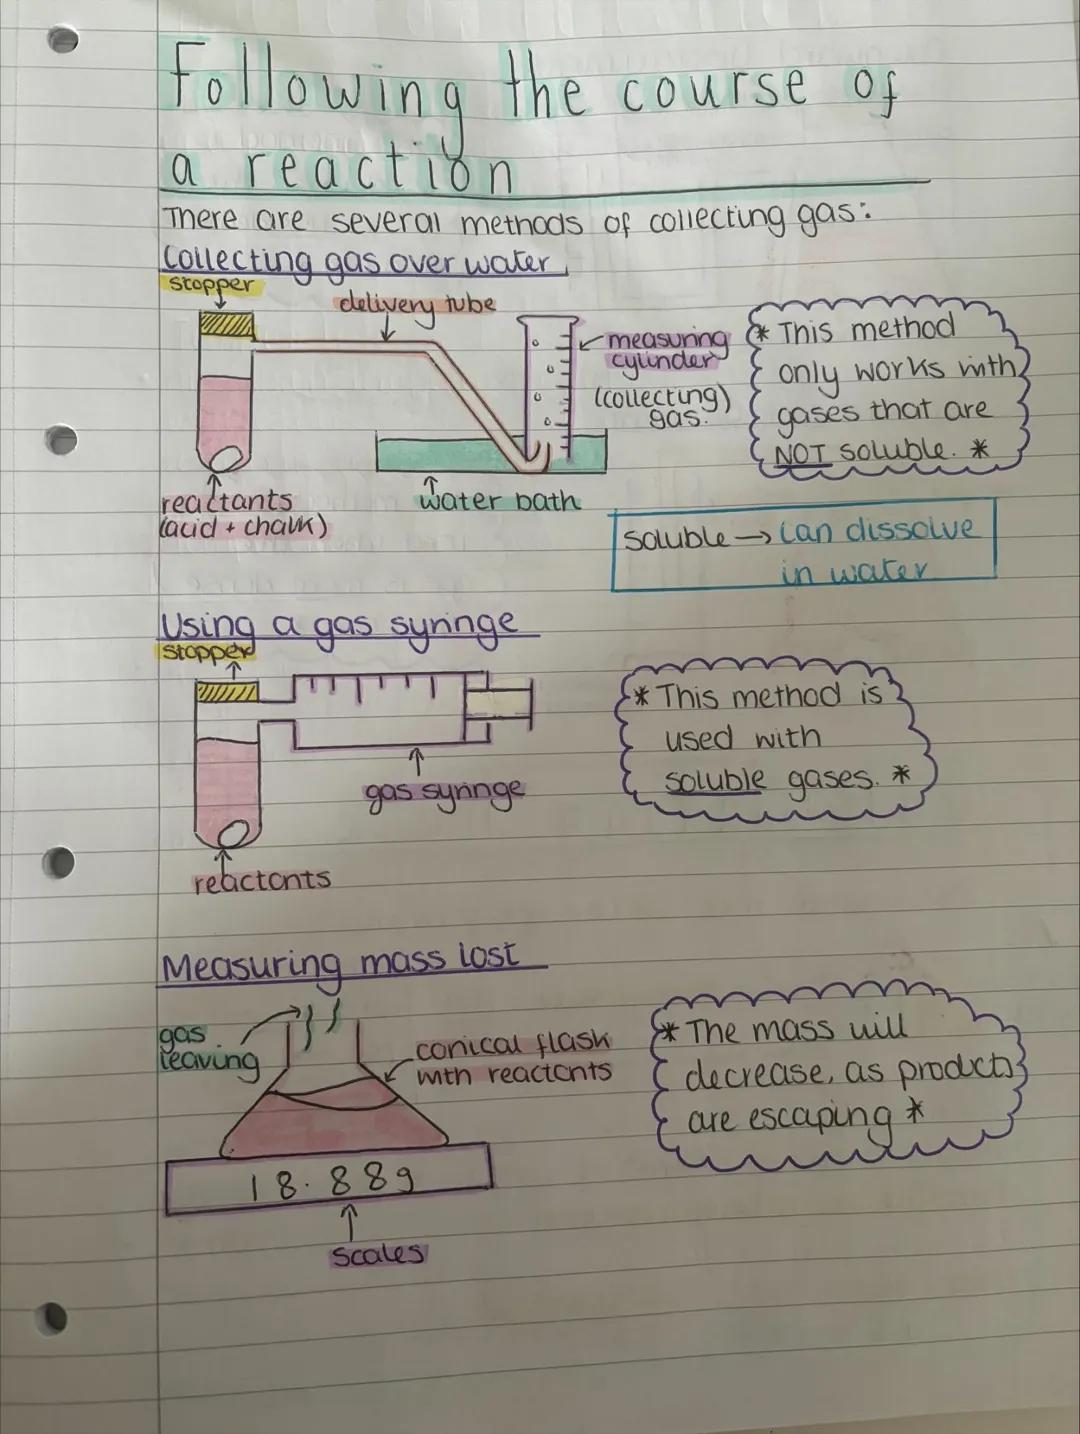 Following the course of
a reaction
There are several methods of collecting gas:
Collecting gas over water
stopper
delivery tube
measuring
cylinder
(collecting)
gas.
* This method
only works with
gases that are
NOT soluble. *
reactants
(acid + chalk)
water bath
soluble → can dissolve
in water
Using a gas syringe
stopper
gas syringe
reactants
* This method is
used with
soluble gases. *
Measuring mass lost
gas
leaving
conical flask
with reactants
18.88g
scales
* The mass will
decrease, as products
are escaping *